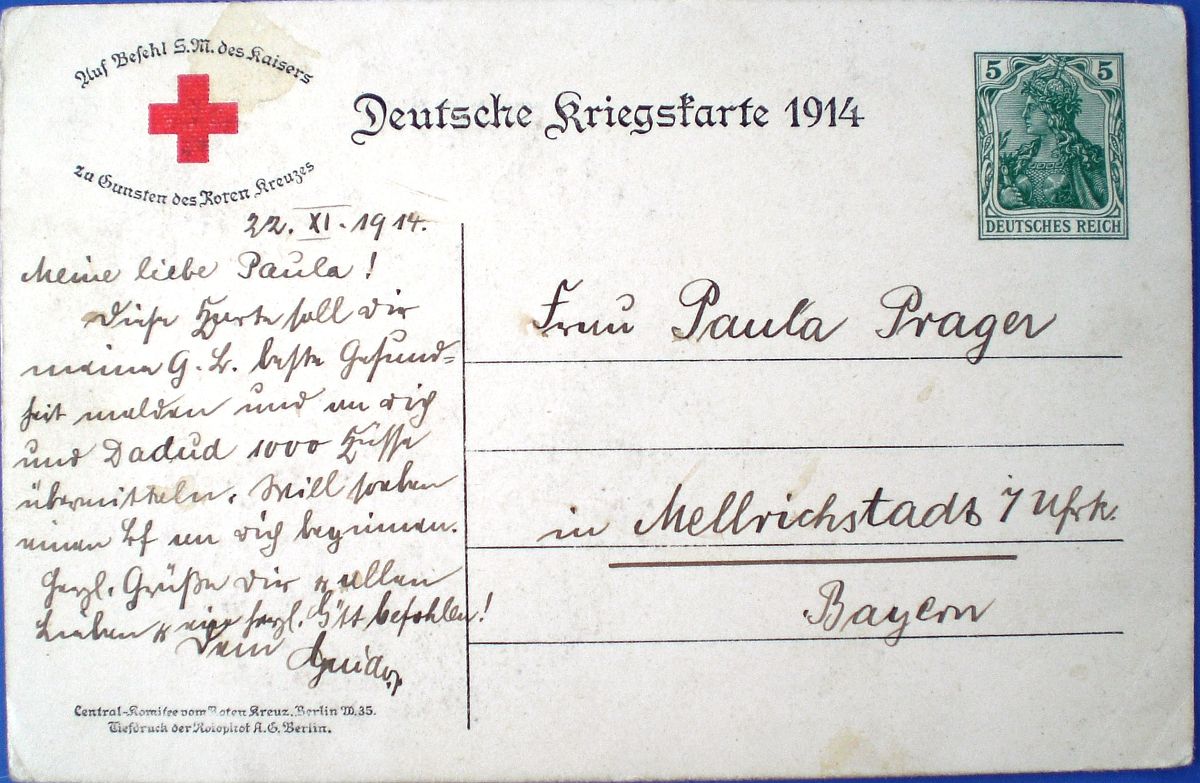 Auf Befehl S.M. des Kaisers
Zu Gunsten des Roten Kreuzes
Deutsche Kriegskarte 1914
5 5
DEUTSCHES REICH
22. XI. 1914.
Meine liebe Paula!
Diese Karte soll Dir
meine G. L. beste Gesund=
heit melden und an Dich
und Dadud 1000 Küsse
übermitteln. Will soeben
einen Bf an Dich beginnen.
Herzl. Grüße Dir u allen
Lieben u ein herzl. Gott befohlen!
Dein Guido
Frau Paula Prager
in Mellrichstadt / Ufrk.
Bayern
Central-Komitee vom Roten Kreuz. Berlin W. 35.
Tiefdruck der Rotophot A.G. Berlin.